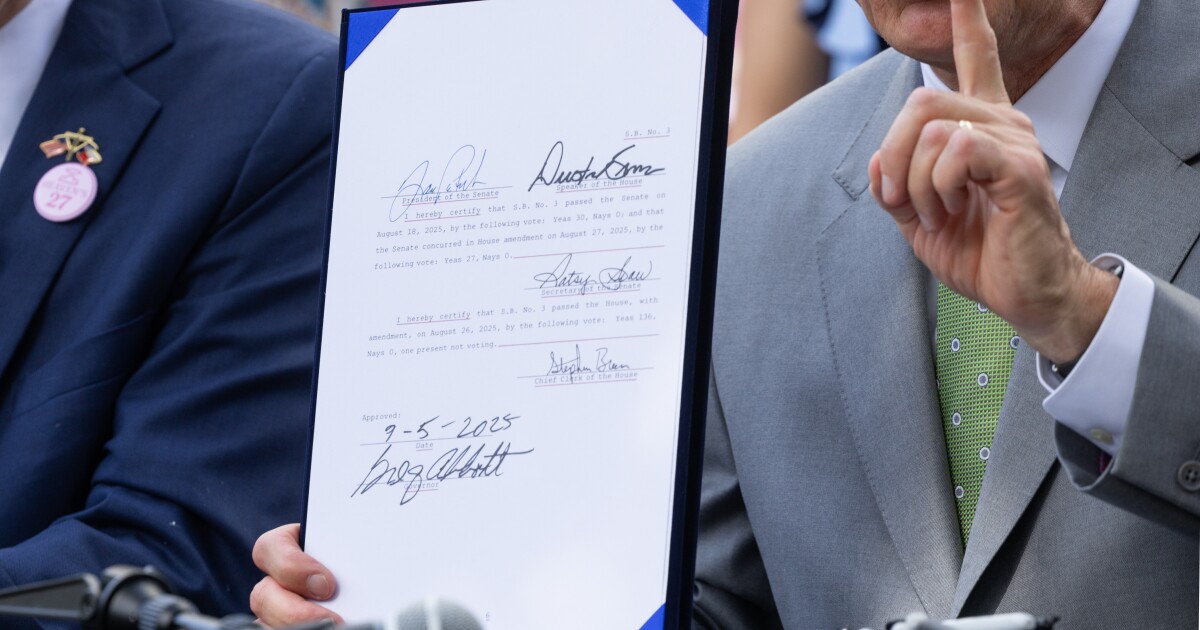 HEAVEN'S
27
S.B. No. 3
President of the Senate
Speaker of the House
I hereby certify that S.B. No. 3 passed the Senate on
August 18, 2025, by the following vote: Yeas 30, Nays 0; and that
the Senate concurred in House amendment on August 27, 2025, by the
following vote: Yeas 27, Nays 0.
Patsy Spaw
Secretary of the Senate
I hereby certify that S.B. No. 3 passed the House, with
amendment, on August 26, 2025, by the following vote: Yeas 136,
Nays 0, one present not voting.
Stephen Brown
Chief Clerk of the House
Approved:
9-5-2025
Date
Greg Abbott
Governor